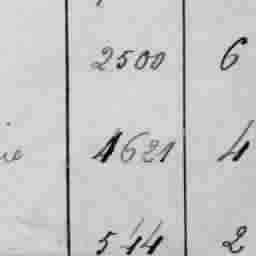 2500 6
ie 1621 4
544 2